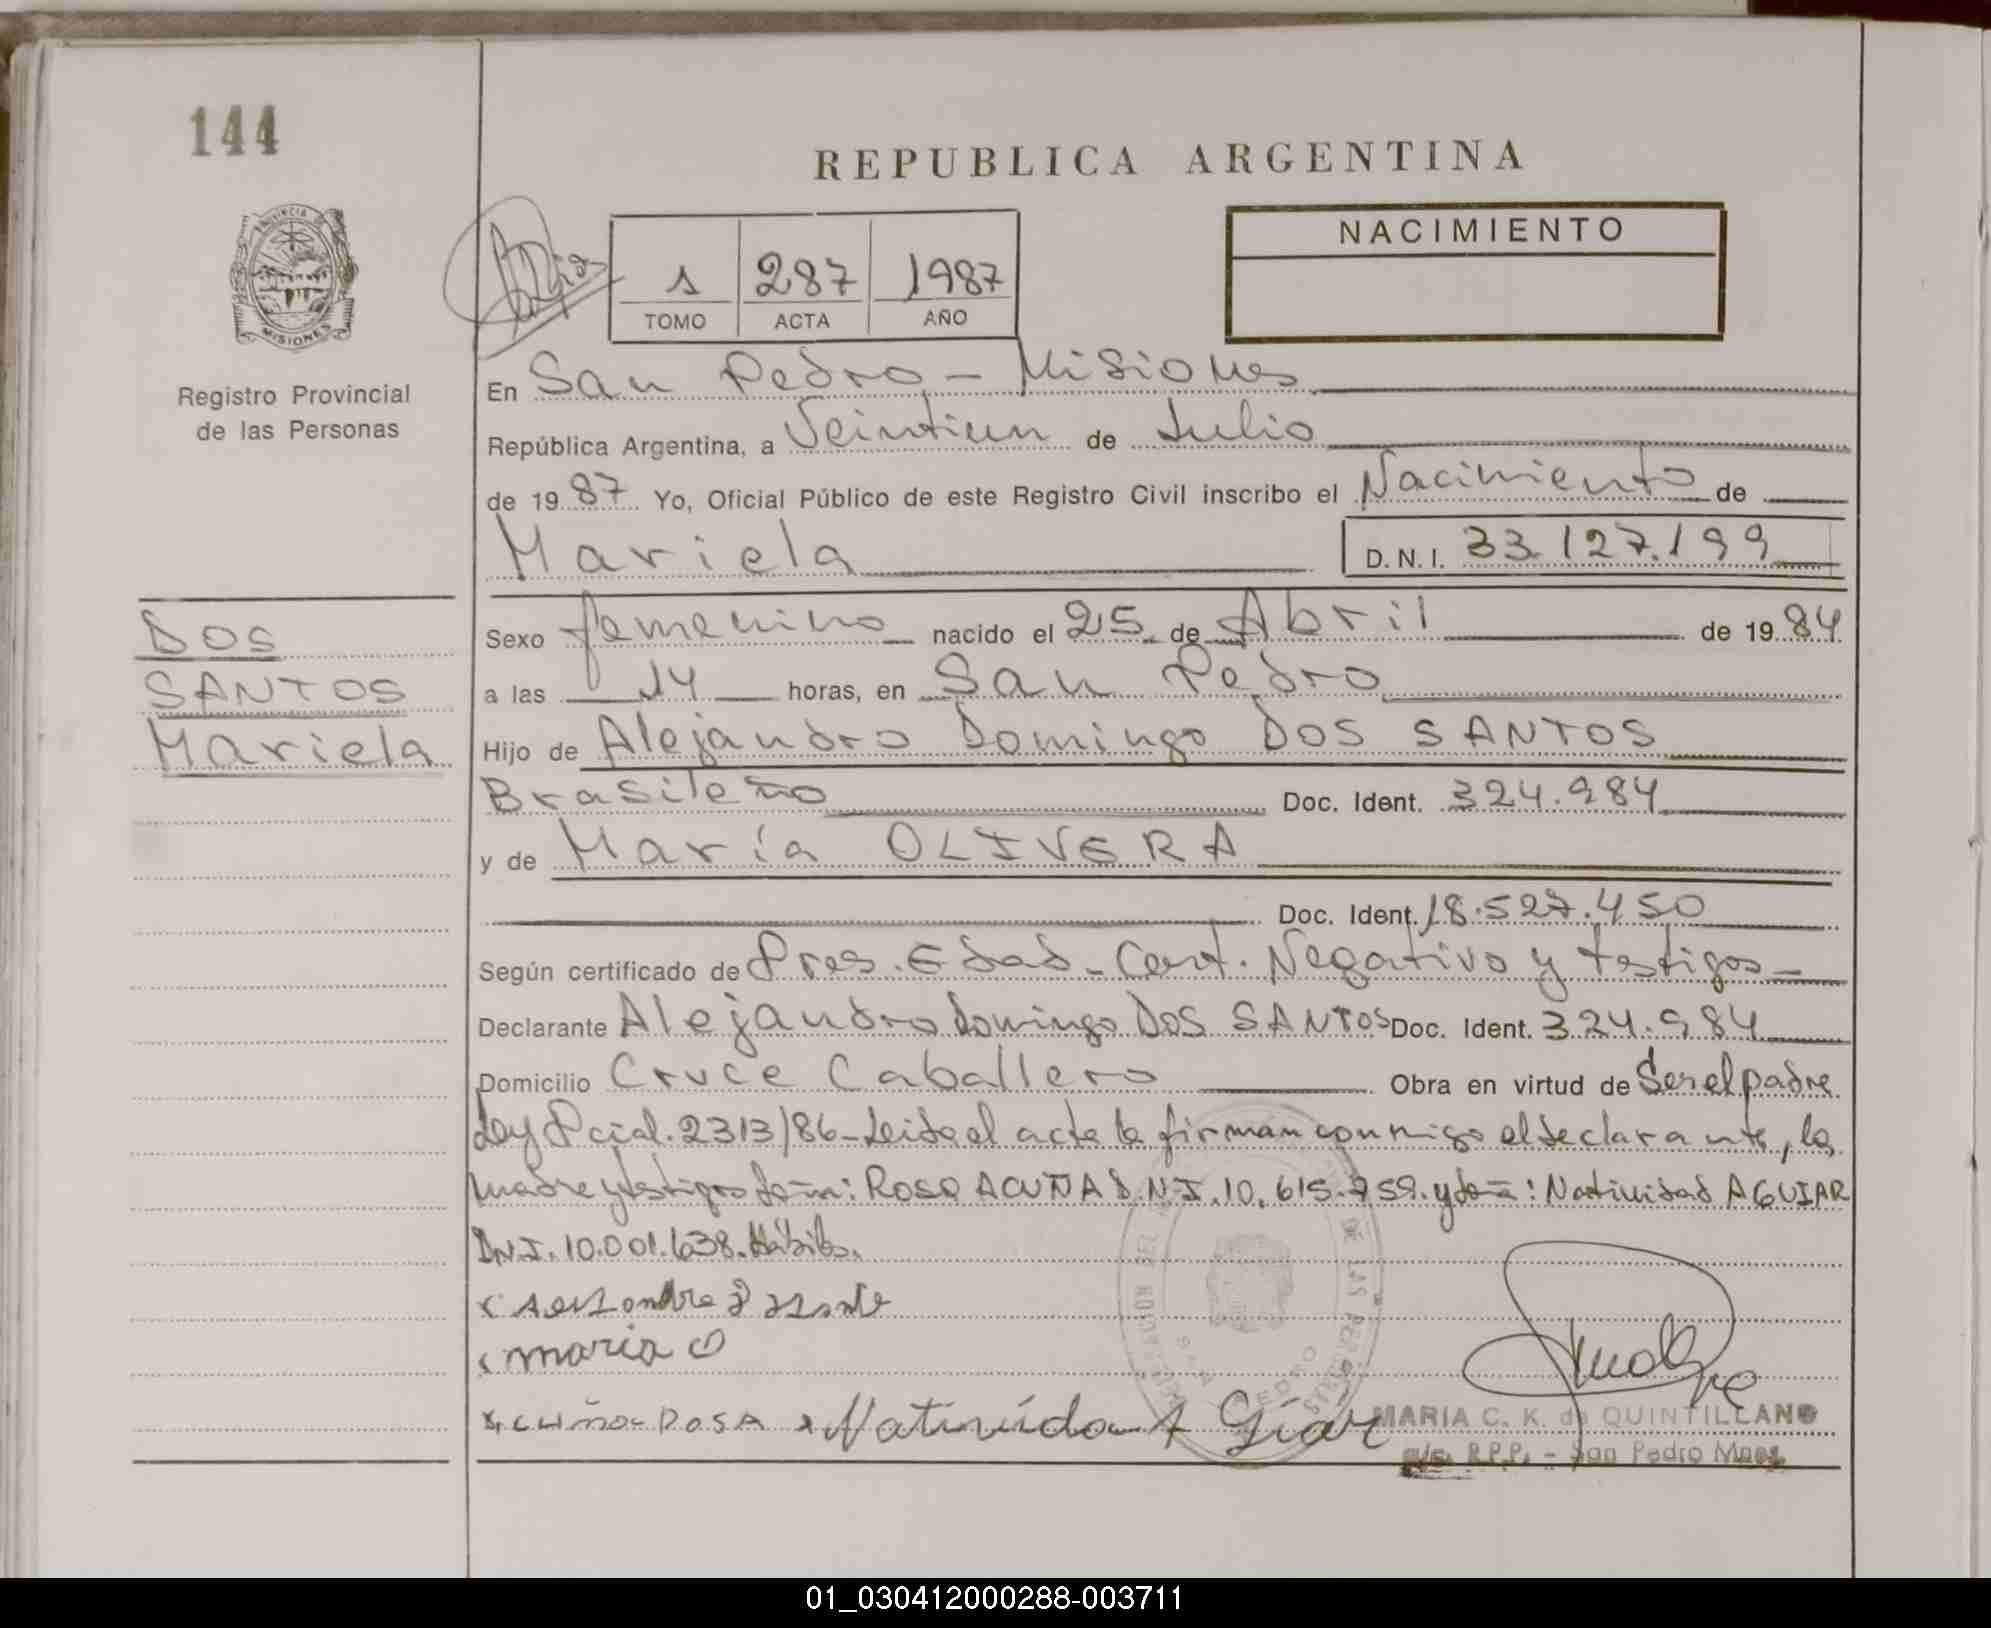 144
REPUBLICA ARGENTINA
PROVINCIA DE
MISIONES
Registro Provincial
de las Personas
1 287 1987
TOMO ACTA AÑO
NACIMIENTO
En San Pedro - Misiones
República Argentina, a Veintiun de Julio
de 1987 Yo, Oficial Público de este Registro Civil inscribo el Nacimiento de
Mariela D.N.I. 33.127.199
DOS
SANTOS
Mariela
Sexo femenino nacido el 25 de Abril de 1984
a las 14 horas, en San Pedro
Hijo de Alejandro Domingo DOS SANTOS
Brasileño Doc. Ident. 324.984
y de María OLIVERA
Doc. Ident. 18.527.450
Según certificado de Pres. Edad - Cert. Negativo y testigos -
Declarante Alejandro Domingo DOS SANTOS Doc. Ident. 324.984
Domicilio Cruce Caballero Obra en virtud de Ser el padre
Ley Pcial. 2313/86 - Leida el acta la firman conmigo el declarante, la
madre y testigos doña: Rosa ACUÑA D.N.I. 10.615.959. y doña: Natividad AGUIAR
D.N.I. 10.001.638. Hábiles.
maria O
ROSA Natividad
MARIA C. K. de QUINTILLANO
a/c. R.P.P. - San Pedro Mnes.
DE LAS PERSONAS
SAN PEDRO
01_030412000288-003711